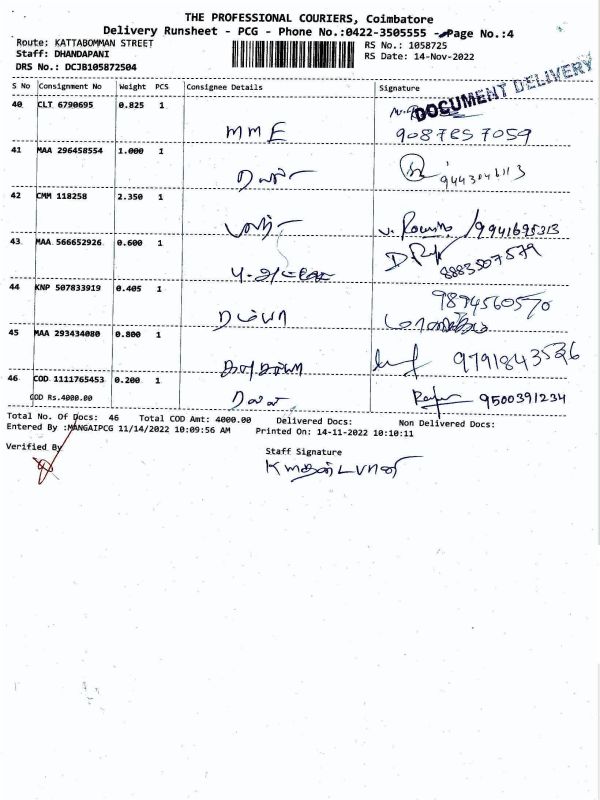 THE PROFESSIONAL COURIERS, Coimbatore
Delivery Runsheet - PCG - Phone No.:0422-3505555 - Page No.:4
Route: KATTABOMMAN STREET
Staff: DHANDAPANI
DRS No.: DCJB105872504
RS No.: 1058725
RS Date: 14-Nov-2022
DOCUMENT DELIVERY
S No Consignment No Weight PCS Consignee Details Signature
40 CLT 6790695 0.825 1
MME 9087257059
41 MAA 296458554 1.000 1
42 CMM 118258 2.350 1
9941695313
43 MAA 566652926 0.600 1
8883507579
44 KNP 507833919 0.405 1
ரம்யா 9894560570
45 MAA 293434080 0.800 1
9791843526
46 COD 1111765453 0.200 1
COD Rs.4000.00
9500391234
Total No. Of Docs: 46 Total COD Amt: 4000.00 Delivered Docs: Non Delivered Docs:
Entered By :MANGAIPCG 11/14/2022 10:09:56 AM Printed On: 14-11-2022 10:10:11
Verified By
Staff Signature